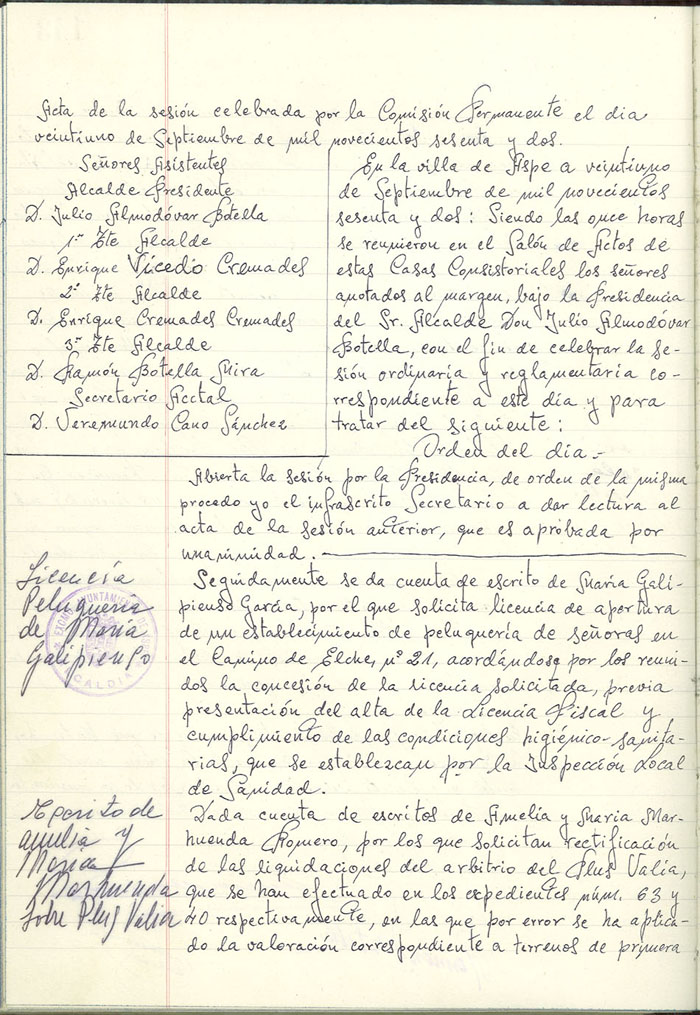 Acta de la sesión celebrada por la Comisión Permanente el dia
veintiuno de Septiembre de mil novecientos sesenta y dos.
Señores Asistentes
Alcalde Presidente
D. Julio Almodóvar Botella
1er Tte Alcalde
D. Enrique Vicedo Cremades
2º Tte Alcalde
D. Enrique Cremades Cremades
3er Tte Alcalde
D. Ramón Botella Mira
Secretario Acctal
D. Veremundo Cano Sánchez
En la villa de Aspe a veintiuno
de Septiembre de mil novecientos
sesenta y dos: Siendo las once horas
se reunieron en el Salón de Actos de
estas Casas Consistoriales los señores
anotados al margen, bajo la Presidencia
del Sr. Alcalde Don Julio Almodóvar
Botella, con el fin de celebrar la se-
sión ordinaria y reglamentaria co-
rrespondiente a este día y para
tratar del siguiente:
Orden del dia.-
Abierta la sesión por la Presidencia, de orden de la misma
procedo yo el infrascrito Secretario a dar lectura al
acta de la sesión anterior, que es aprobada por
unanimidad.
Licencia
Peluqueria
de Maria
Galipienso
ALCALDIA
Seguidamente se da cuenta de escrito de Maria Gali-
pienso Garcia, por el que solicita licencia de apertura
de un establecimiento de peluquería de señoras en
el Camino de Elche, nº 21, acordándose por los reuni-
dos la concesión de la licencia solicitada, previa
presentación del alta de la Licencia Fiscal y
cumplimiento de las condiciones higiénico-sanita-
rias, que se establezcan por la Inspección Local
de Sanidad.
Escrito de
amelia y
Maria
Marhuenda
sobre Plus Valia
Dada cuenta de escritos de Amelia y Maria Mar-
huenda Romero, por los que solicitan rectificación
de las liquidaciones del arbitrio del Plus Valía,
que se han efectuado en los expedientes núm. 63 y
40 respectivamente, en las que por error se ha aplica-
do la valoración correspondiente a terrenos de primera